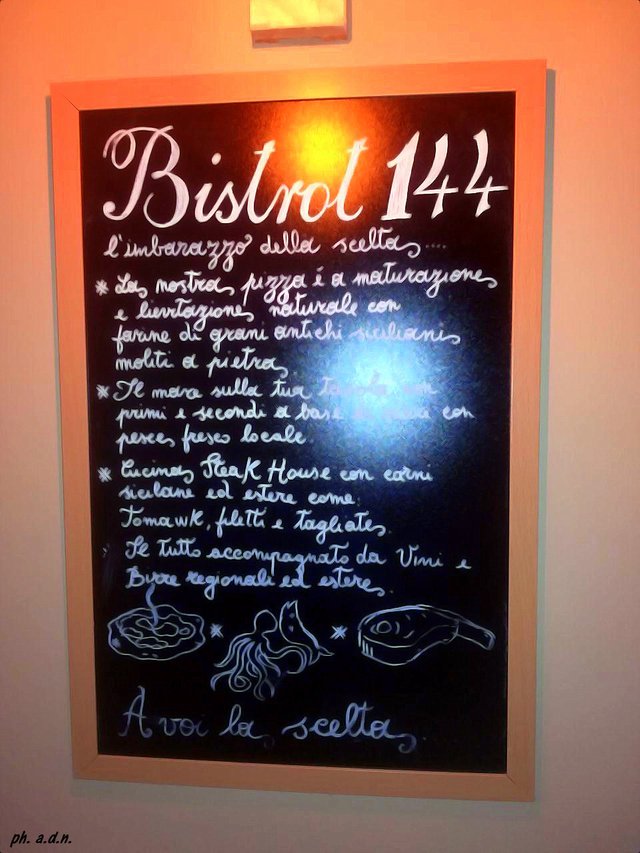 Bistrot 144
l'imbarazzo della scelta....
* La nostra pizza é a maturazione
e lievitazione naturale con
farine di grani antichi siciliani
moliti a pietra
* Il mare sulla tua tavola con
primi e secondi a base di con
pesce fresco locale.
* Cucina Steak House con carni
siciliane ed estere come
Tomawk, filetti e tagliate.
Il tutto accompagnato da Vini e
Birre regionali ed estere.
A voi la scelta..
ph. a.d.n.